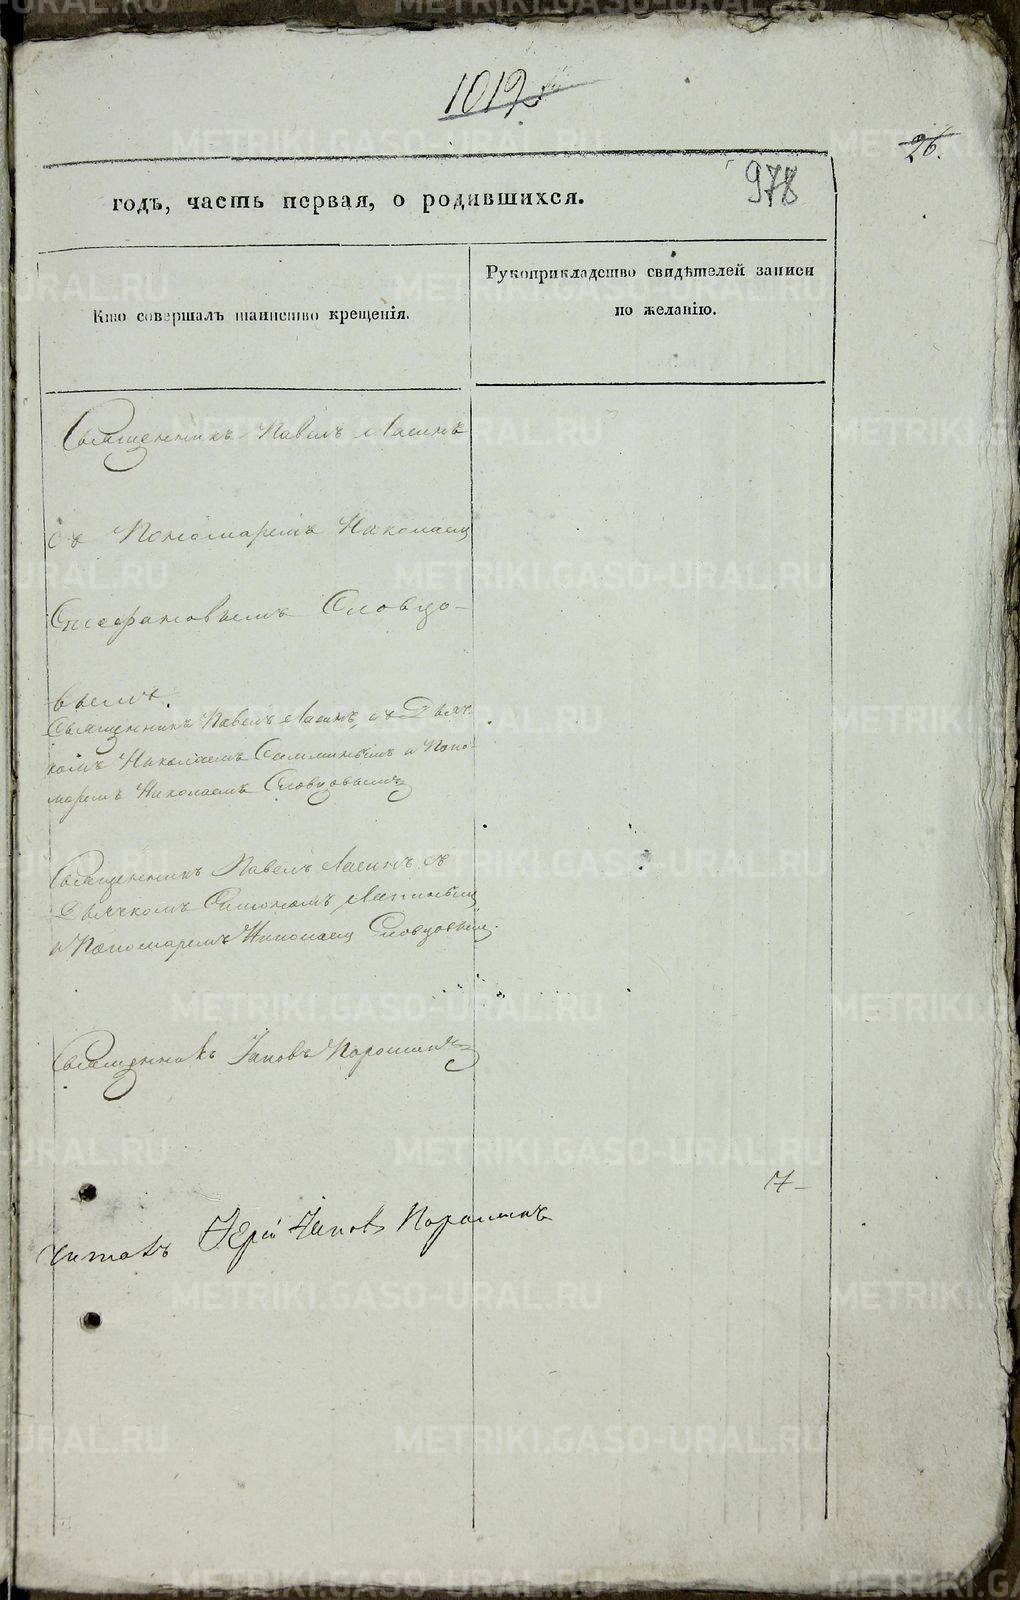 1012
26.
978
годъ, часть первая, о родившихся.
Кто совершалъ таинство крещенія.
Рукоприкладство свидѣтелей записи
по желанію.
Священникъ Павелъ Ляпинъ
съ Пономаремъ Николаемъ
Стефановымъ Словцо-
вымъ.
Священникъ Павелъ Ляпинъ, съ Дьяч
комъ Николаемъ и Поно-
маремъ Николаемъ Словцовымъ
Священникъ Павелъ Ляпинъ съ
Дьячкомъ Симономъ Ляпинымъ
и Пономаремъ Николаемъ Словцовымъ.
Священникъ Іаковъ Порошинъ
7-
читалъ Іерей Іаковъ Порошинъ
METRIKI.GASO-URAL.RU